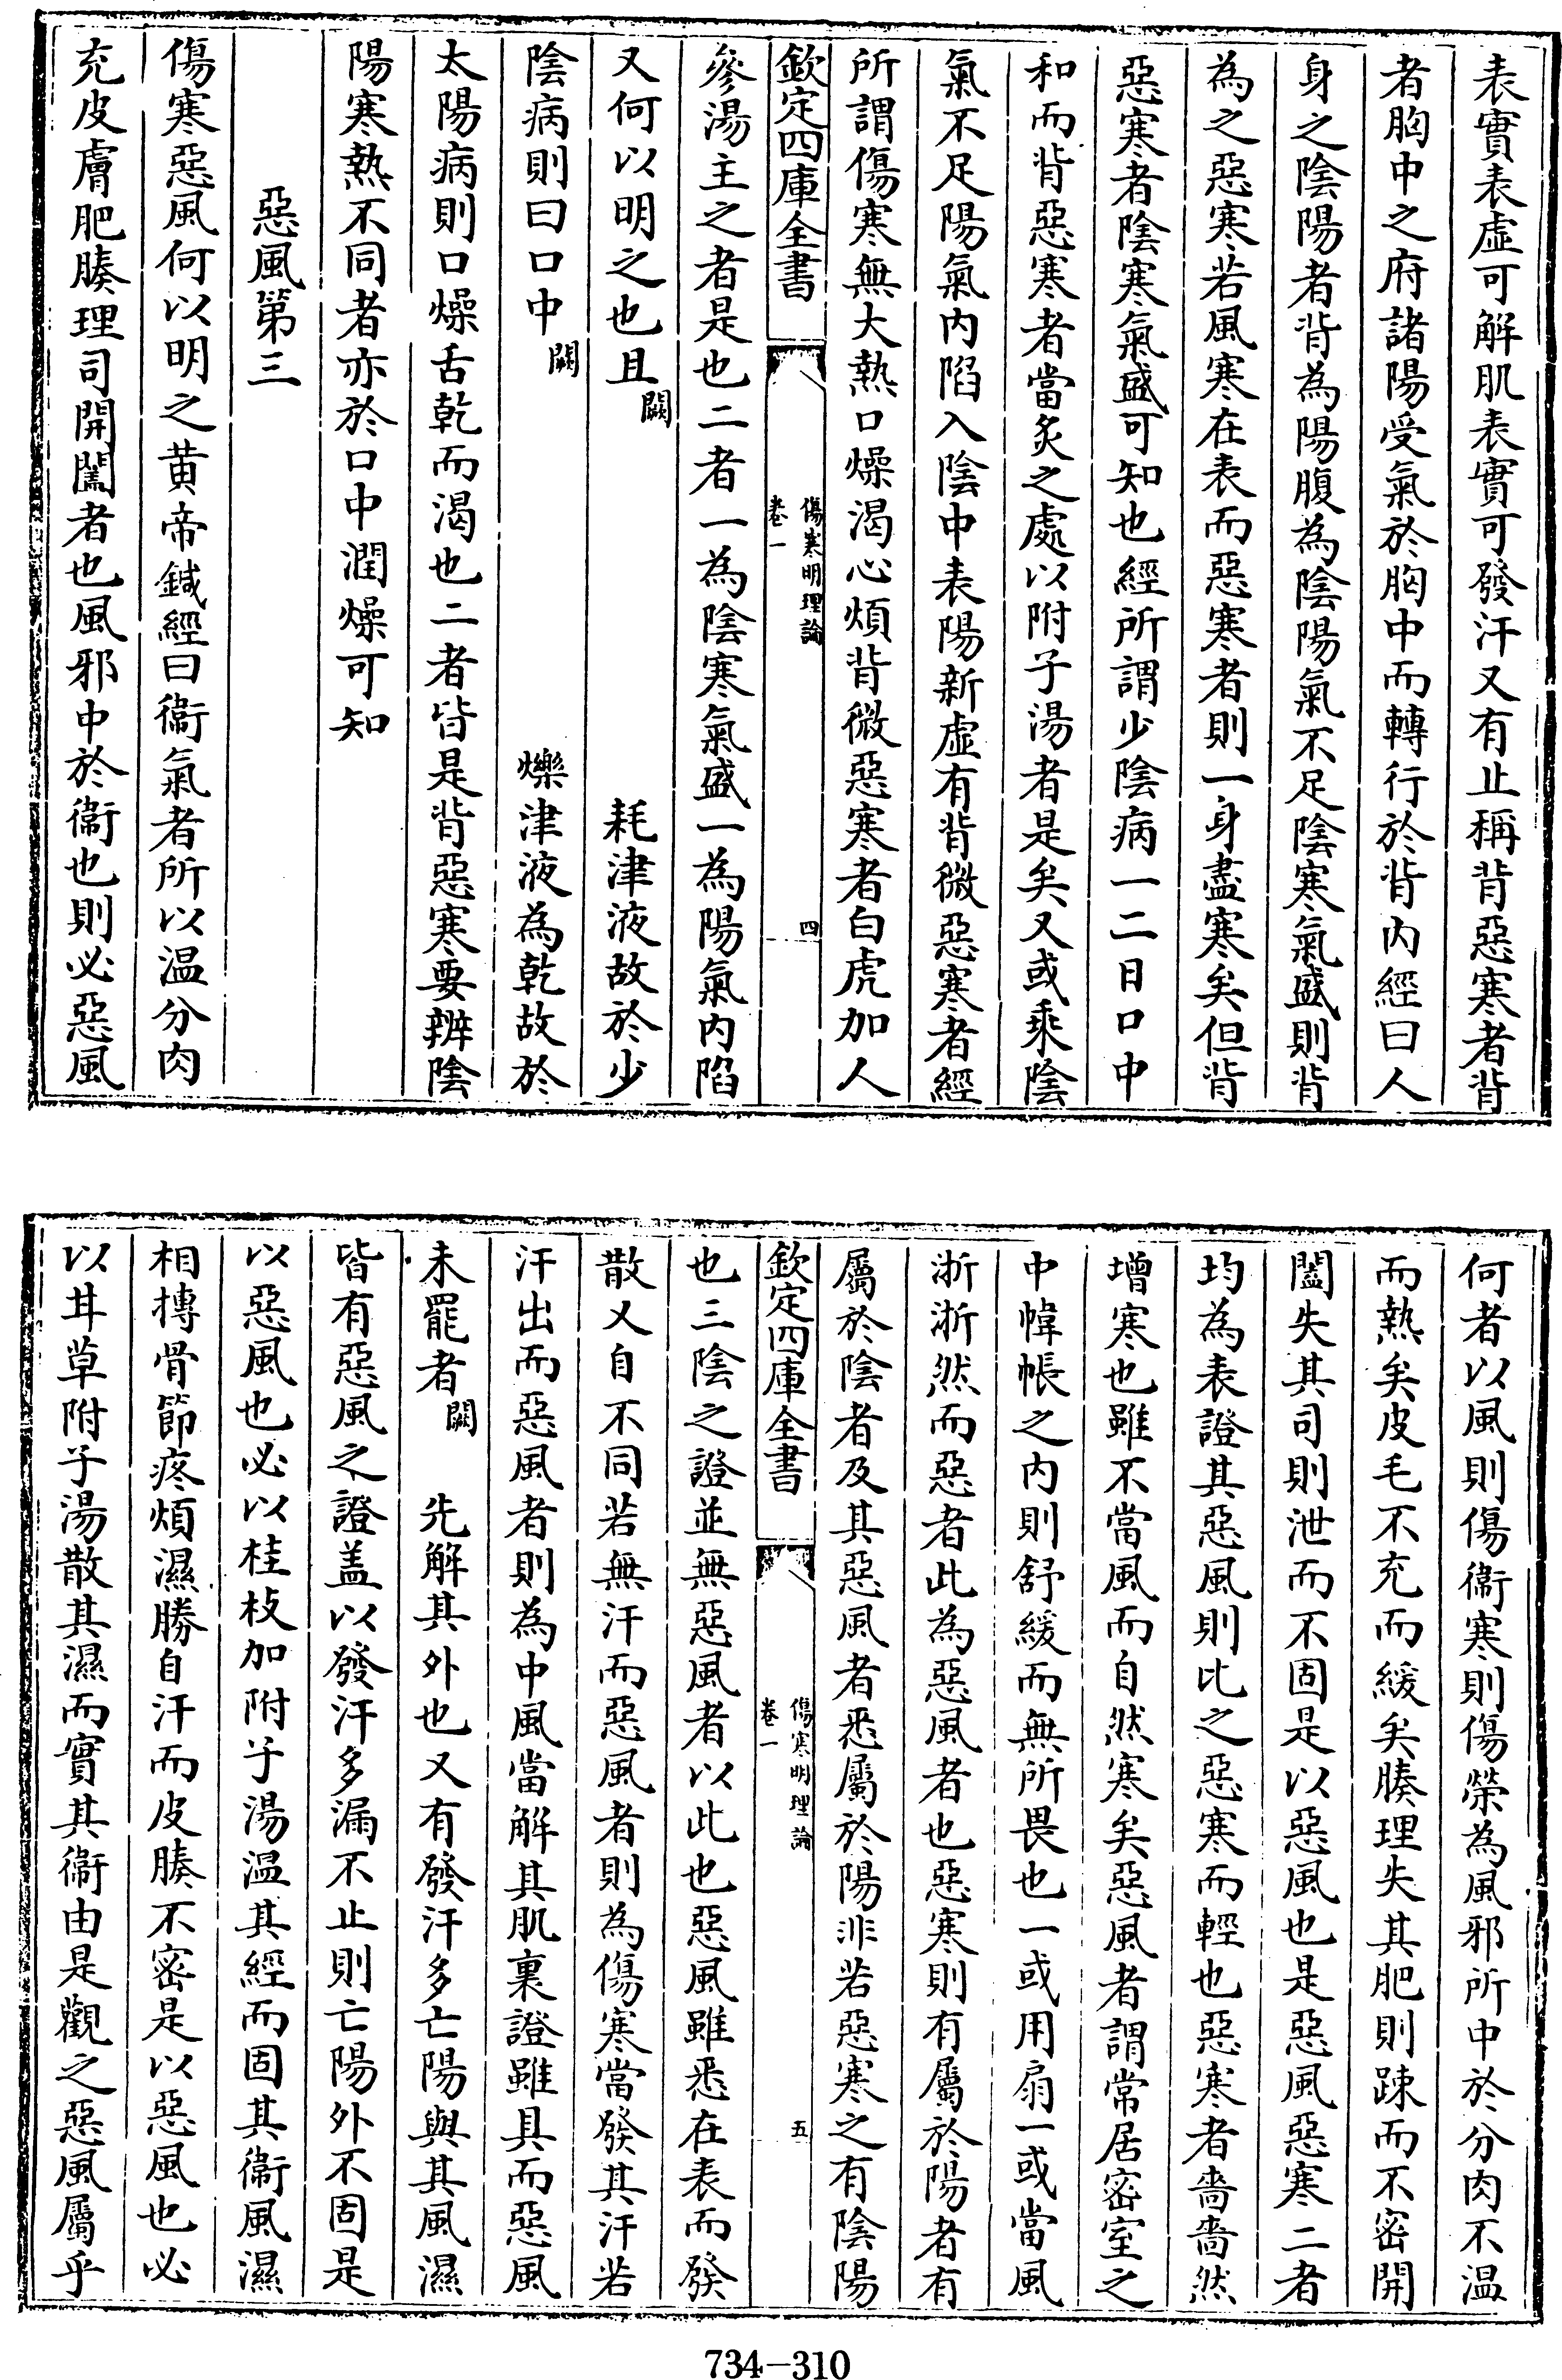 表實表虛可解肌表實可發汗又有止稱背惡寒者背
者胸中之府諸陽受氣於胸中而轉行於背内經曰人
身之陰陽者背為陽腹為陰陽氣不足陰寒氣盛則背
為之惡寒若風寒在表而惡寒者則一身盡寒矣但背
惡寒者陰寒氣盛可知也經所謂少陰病一二日口中
和而背惡寒者當炙之處以附子湯者是矣又或乘陰
氣不足陽氣内陷入陰中表陽新虛有背微惡寒者經
所謂傷寒無大熱口燥渴心煩背微惡寒者白虎加人
欽定四庫全書
傷寒明理論
卷一
四
參湯主之者是也二者一為陰寒氣盛一為陽氣内陷
又何以明之也且闕耗津液故於少
陰病則曰口中闕爍津液為乾故於
太陽病則口燥舌乾而渴也二者皆是背惡寒要辨陰
陽寒熱不同者亦於口中潤燥可知
惡風第三
傷寒惡風何以明之黄帝鍼經曰衞氣者所以温分肉
充皮膚肥腠理司開闔者也風邪中於衞也則必惡風
何者以風則傷衞寒則傷榮為風邪所中於分肉不温
而熱矣皮毛不充而緩矣腠理失其肥則踈而不密開
闔失其司則泄而不固是以惡風也是惡風惡寒二者
均為表證其惡風則比之惡寒而輕也惡寒者嗇嗇然
增寒也雖不當風而自然寒矣惡風者謂常居密室之
中幃帳之内則舒緩而無所畏也一或用扇一或當風
淅淅然而惡者此為惡風者也惡寒則有屬於陽者有
屬於陰者及其惡風者悉屬於陽非若惡寒之有陰陽
欽定四庫全書
傷寒明理論
卷一
五
也三陰之證並無惡風者以此也惡風雖悉在表而發
散又自不同若無汗而惡風者則為傷寒當發其汗若
汗出而惡風者則為中風當解其肌裏證雖具而惡風
未罷者闕先解其外也又有發汗多亡陽與其風濕
皆有惡風之證盖以發汗多漏不止則亡陽外不固是
以惡風也必以桂枝加附子湯温其經而固其衞風濕
相摶骨節疼煩濕勝自汗而皮腠不密是以惡風也必
以甘草附子湯散其濕而實其衞由是觀之惡風屬乎
734-310